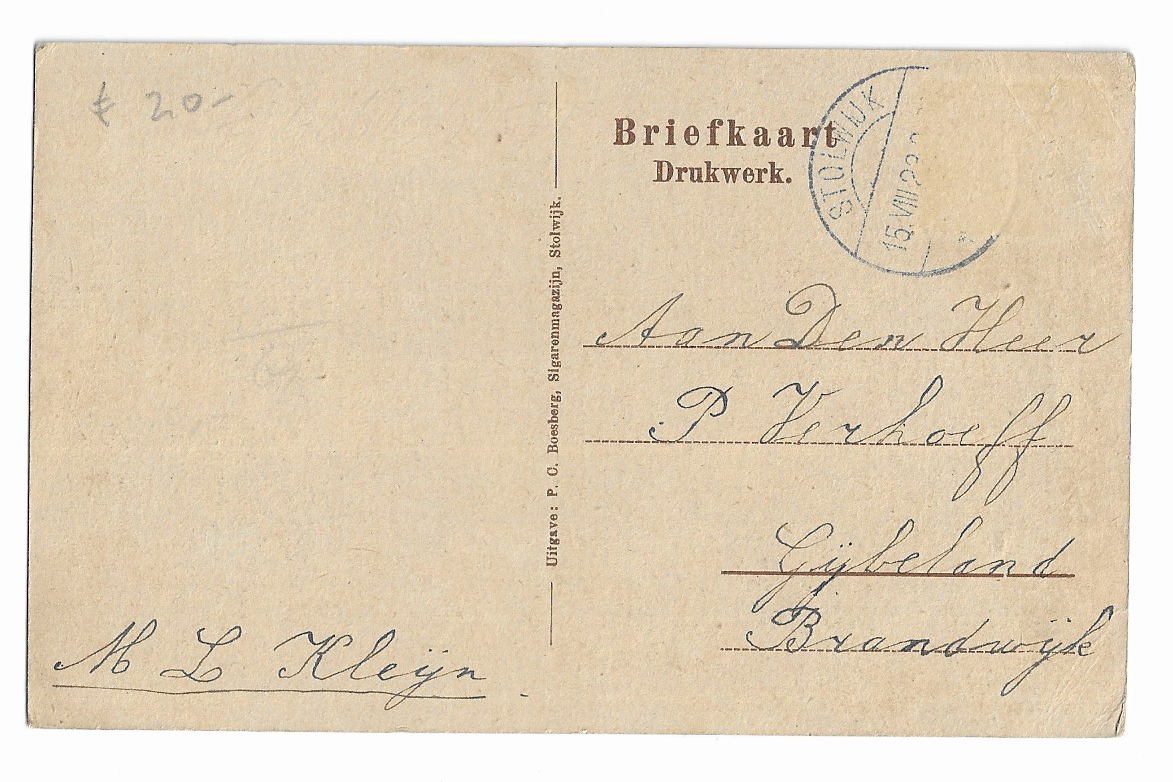 € 20-
Briefkaart
Drukwerk.
STOLWIJK
15.VIII.22
Uitgave: P. C. Boesberg, Sigarenmagazijn, Stolwijk.
Aan Den Heer
P Verhoeff
Gijbeland
Brandwijk
M L Kleijn